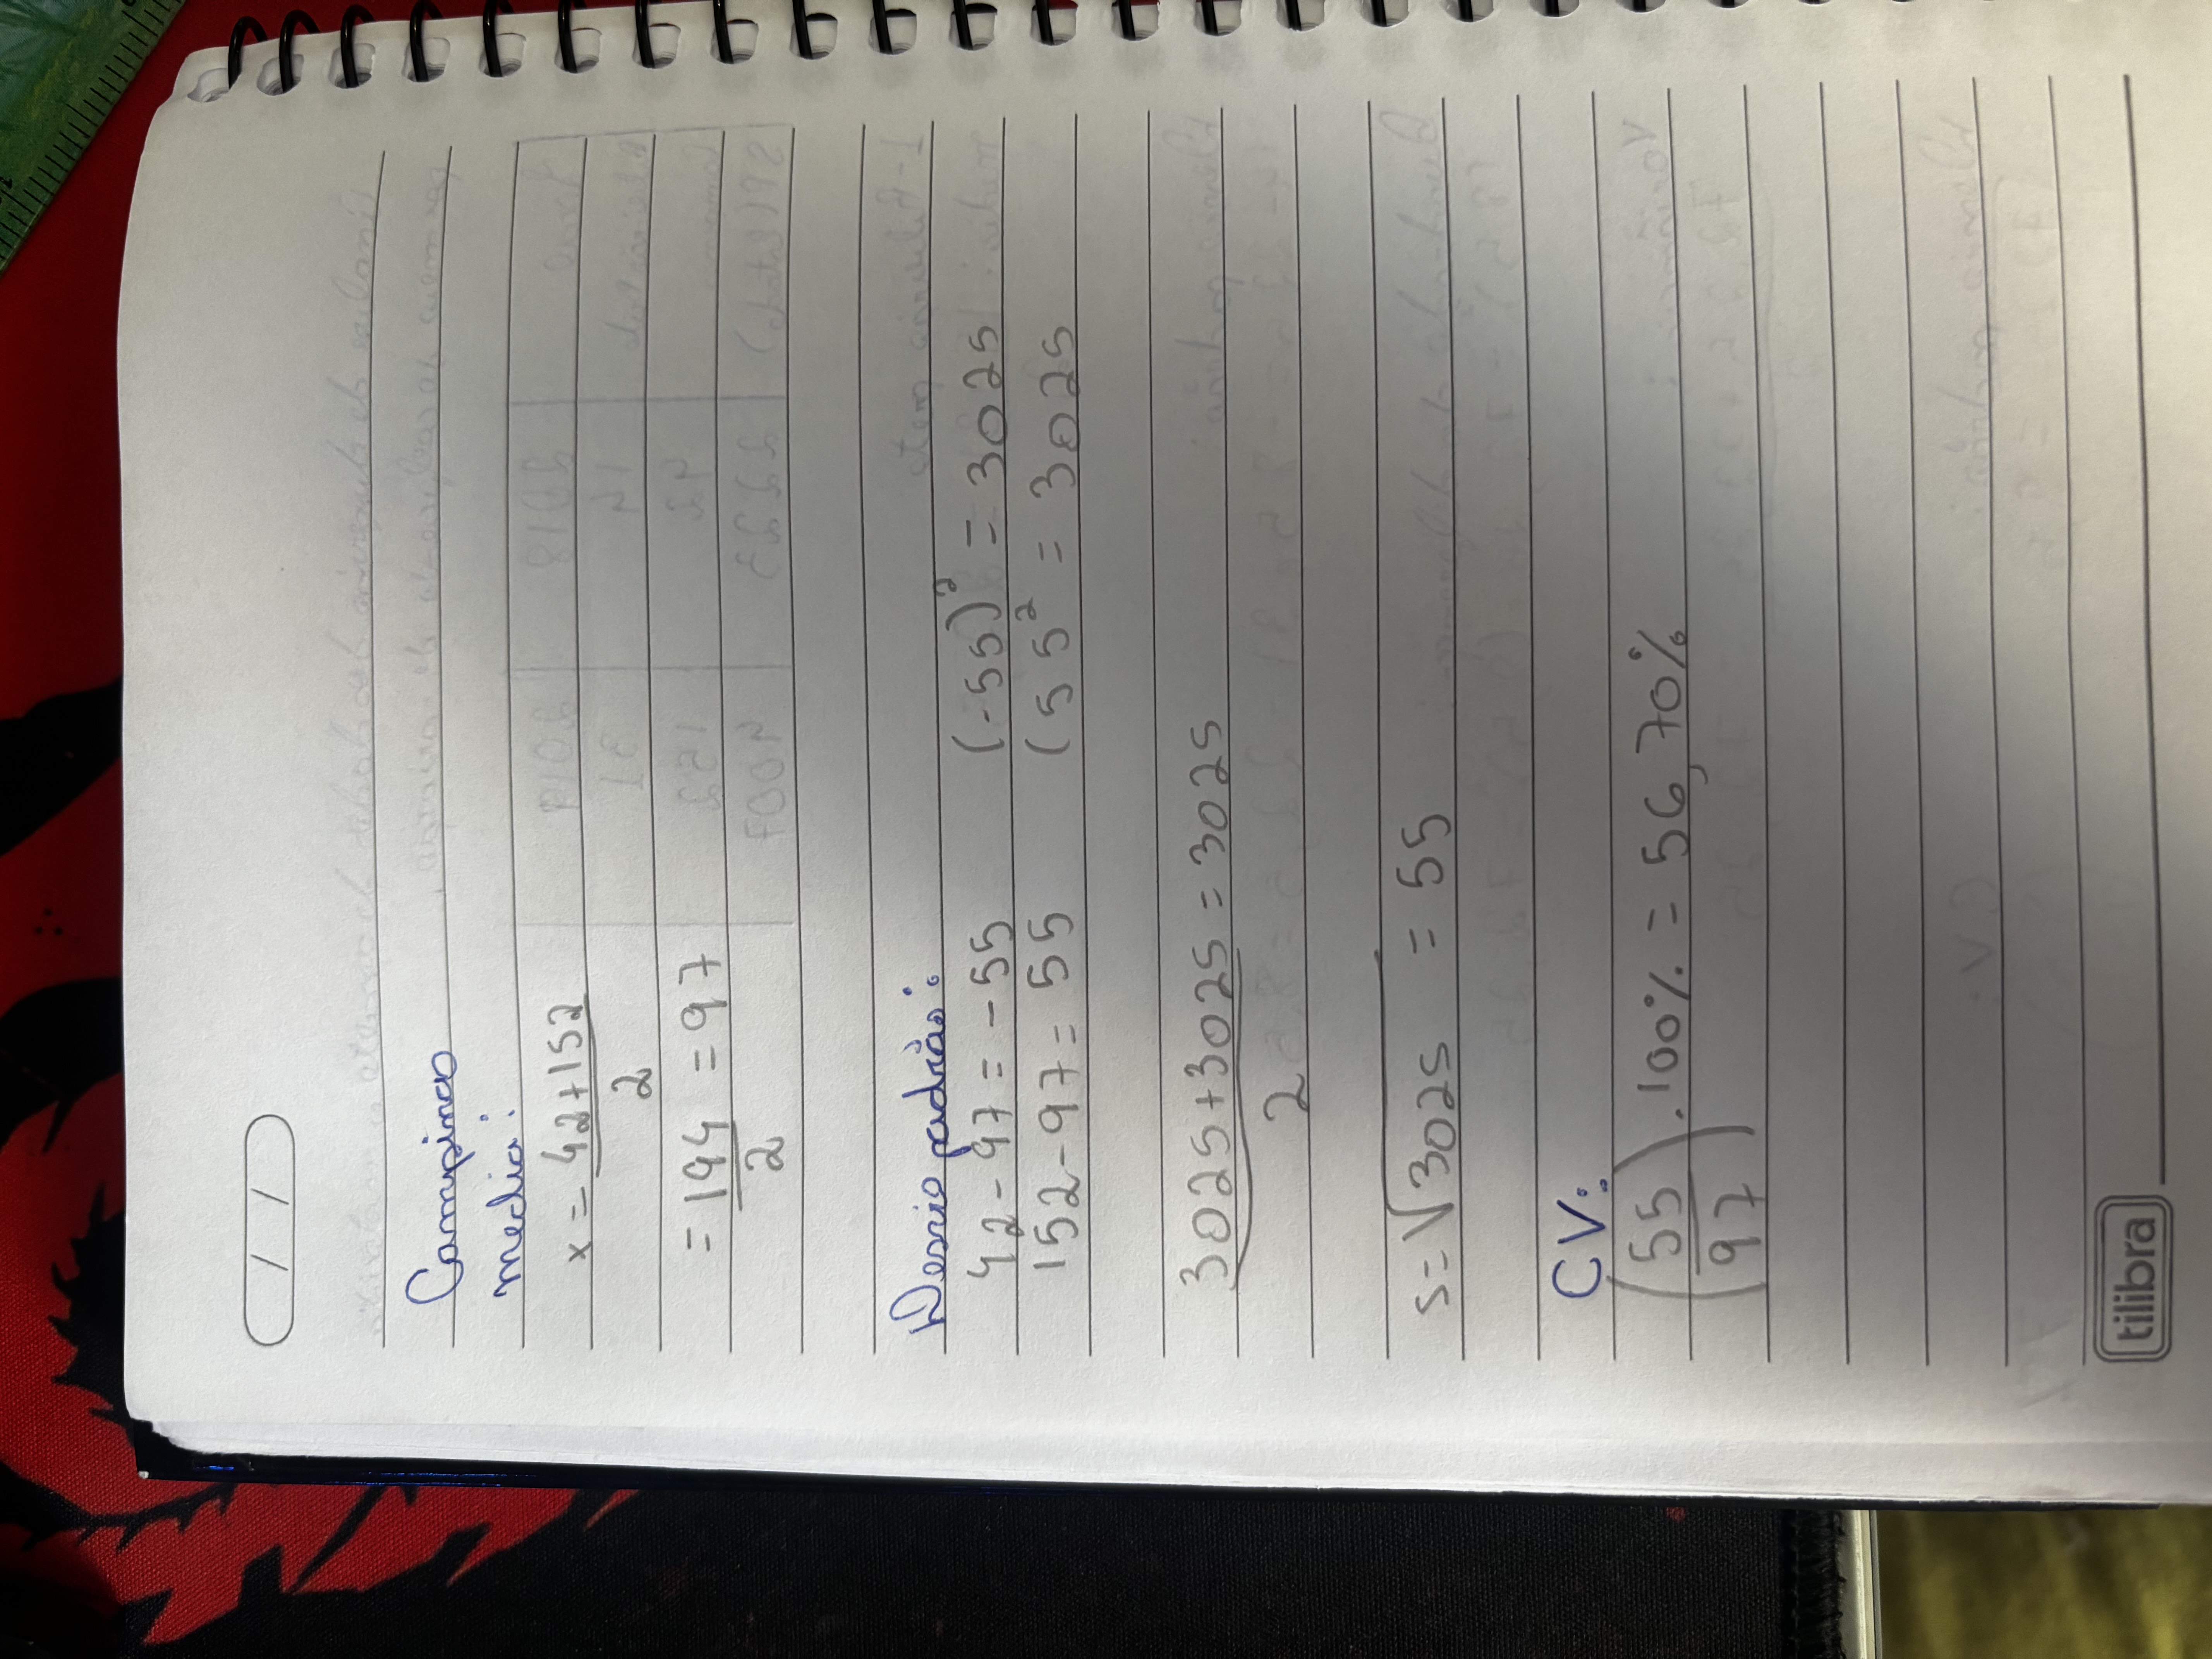 / /
Campinas
media:
x = 42+152
2
= 194 = 97
2
Desvio padrão:
42-97 = -55 (-55)² = 3025
152-97 = 55 (55² = 3025
3025+3025 = 3025
2
s=√3025 = 55
CV:
(55/97) . 100% = 56,70%
tilibra